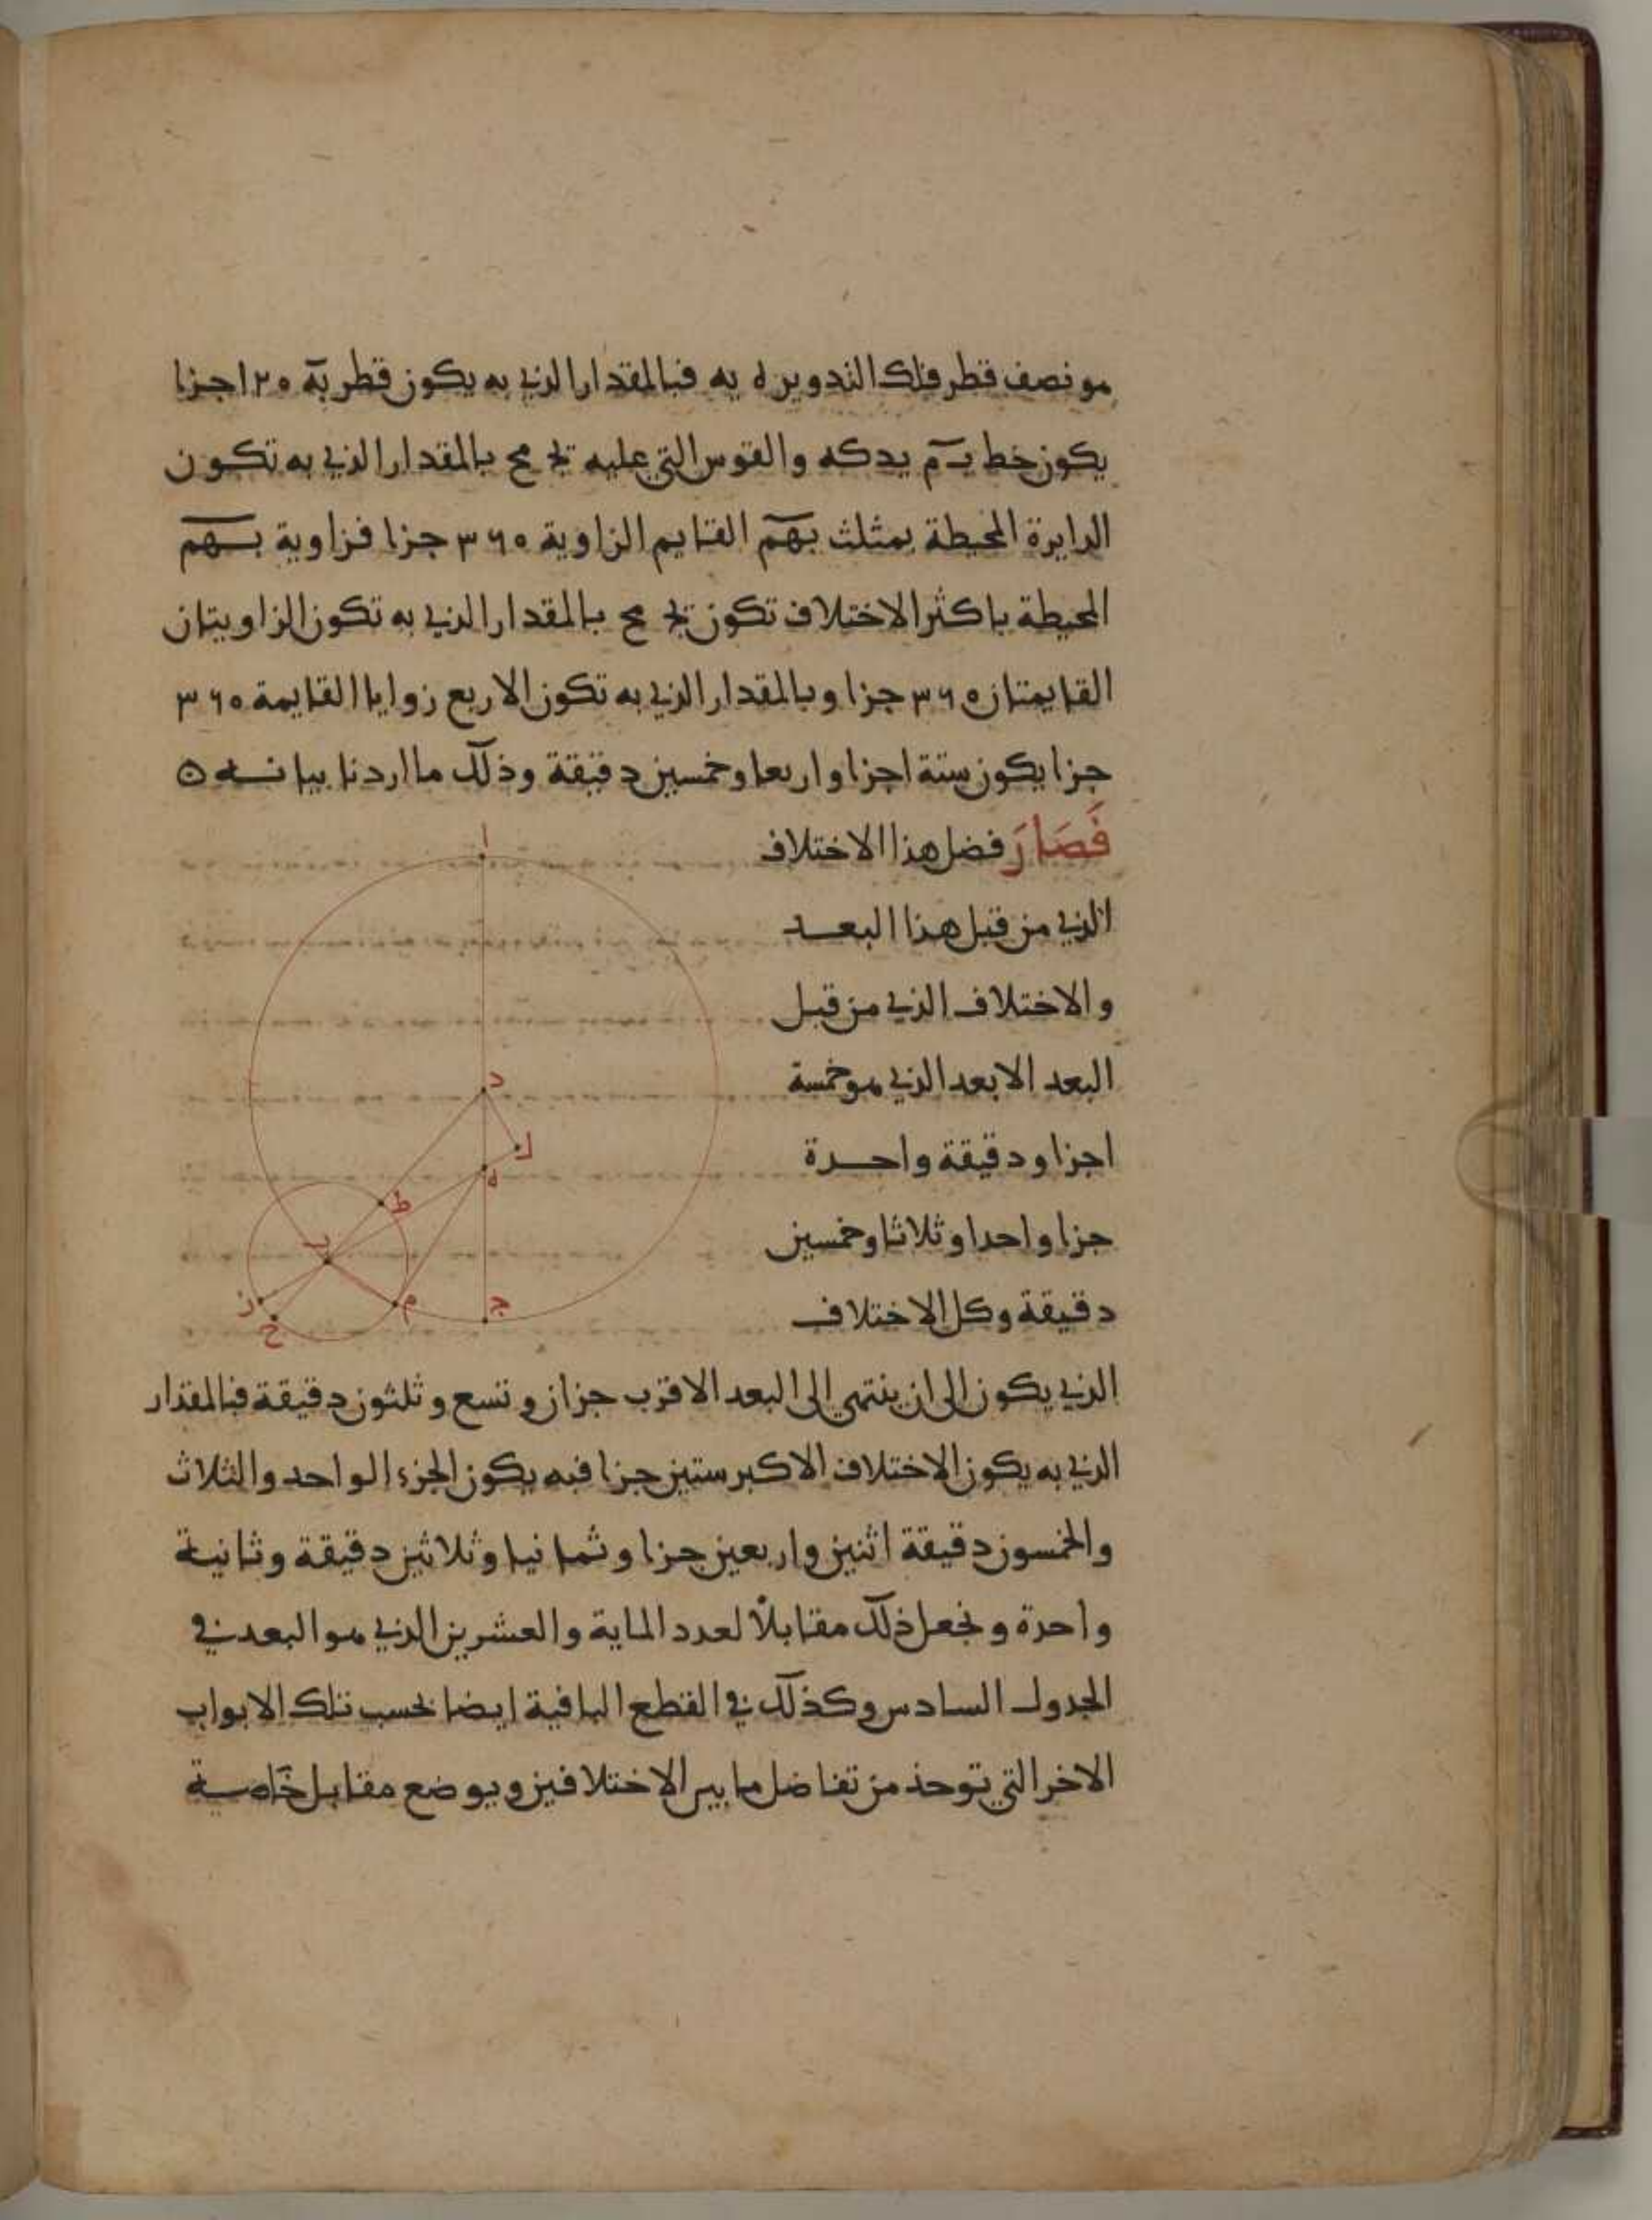 هو نصف قطر فلك التدوير ه يه فبالمقدار الذي به يكون قطر به ١٢٠ جزا
يكون خط بم يد كه والقوس التي عليه يج مح بالمقدار الذي به تكون
الدايرة المحيطة بمثلث بهم القايم الزاوية ٣٦٠ جزا فزاوية بهم
المحيطة باكثر الاختلاف تكون يج مح بالمقدار الذي به تكون الزاويتان
القايمتان ٣٦٠ جزا وبالمقدار الذي به تكون الاربع زوايا القايمة ٣٦٠
جزا يكون ستة اجزا واربعا وخمسين دقيقة وذلك ما اردنا بيانه ه
فَصَارَ فضل هذا الاختلاف
الذي من قبل هذا البعد
والاختلاف الذي من قبل
البعد الابعد الذي هو خمسة
اجزا ودقيقة واحدة
جزا واحدا وثلاثا وخمسين
دقيقة وكل الاختلاف
الذي يكون الى ان ينتهي الى البعد الاقرب جزان وتسع وثلثون دقيقة فبالمقدار
الذي به يكون الاختلاف الاكبر ستين جزا فبه يكون الجزء الواحد والثلاث
والخمسون دقيقة اثنين واربعين جزا وثمانيا وثلاثين دقيقة وثانية
واحدة ونجعل ذلك مقابلاً لعدد الماية والعشرين الذي هو البعد في
الجدول السادس وكذلك في القطع الباقية ايضا بحسب تلك الابواب
الاخر التي توخذ من تفاضل ما بين الاختلافين ويوضع مقابل خاصة
ا
د
ك
ه
ط
ب
ز
ح
م
ج